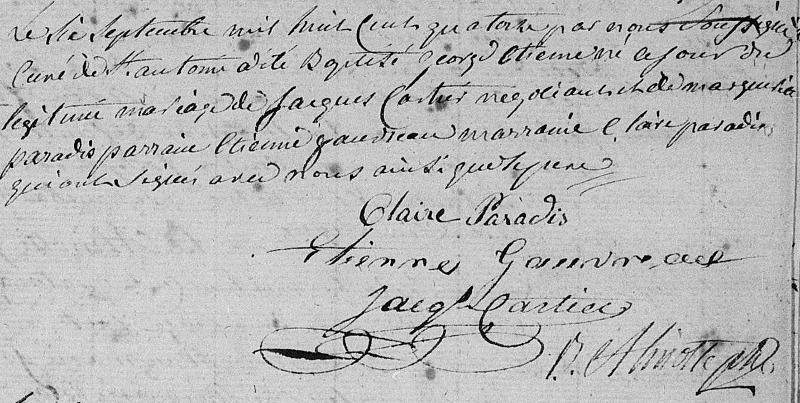 Le Six Septembre mil huit Cent quatorze par nous Soussigné
Curé de St antoine a été Baptisé George Etienne né ce jour du
legitime mariage de Jacques Cartier negotiant et de margueritte
paradis parrain Etienne gauvreau marraine Claire paradis
qui ont Signés avec nous ainsi que le pere
Claire Paradis
Etienne Gauvreau
Jacqs Cartier
B. Alinotte ptre